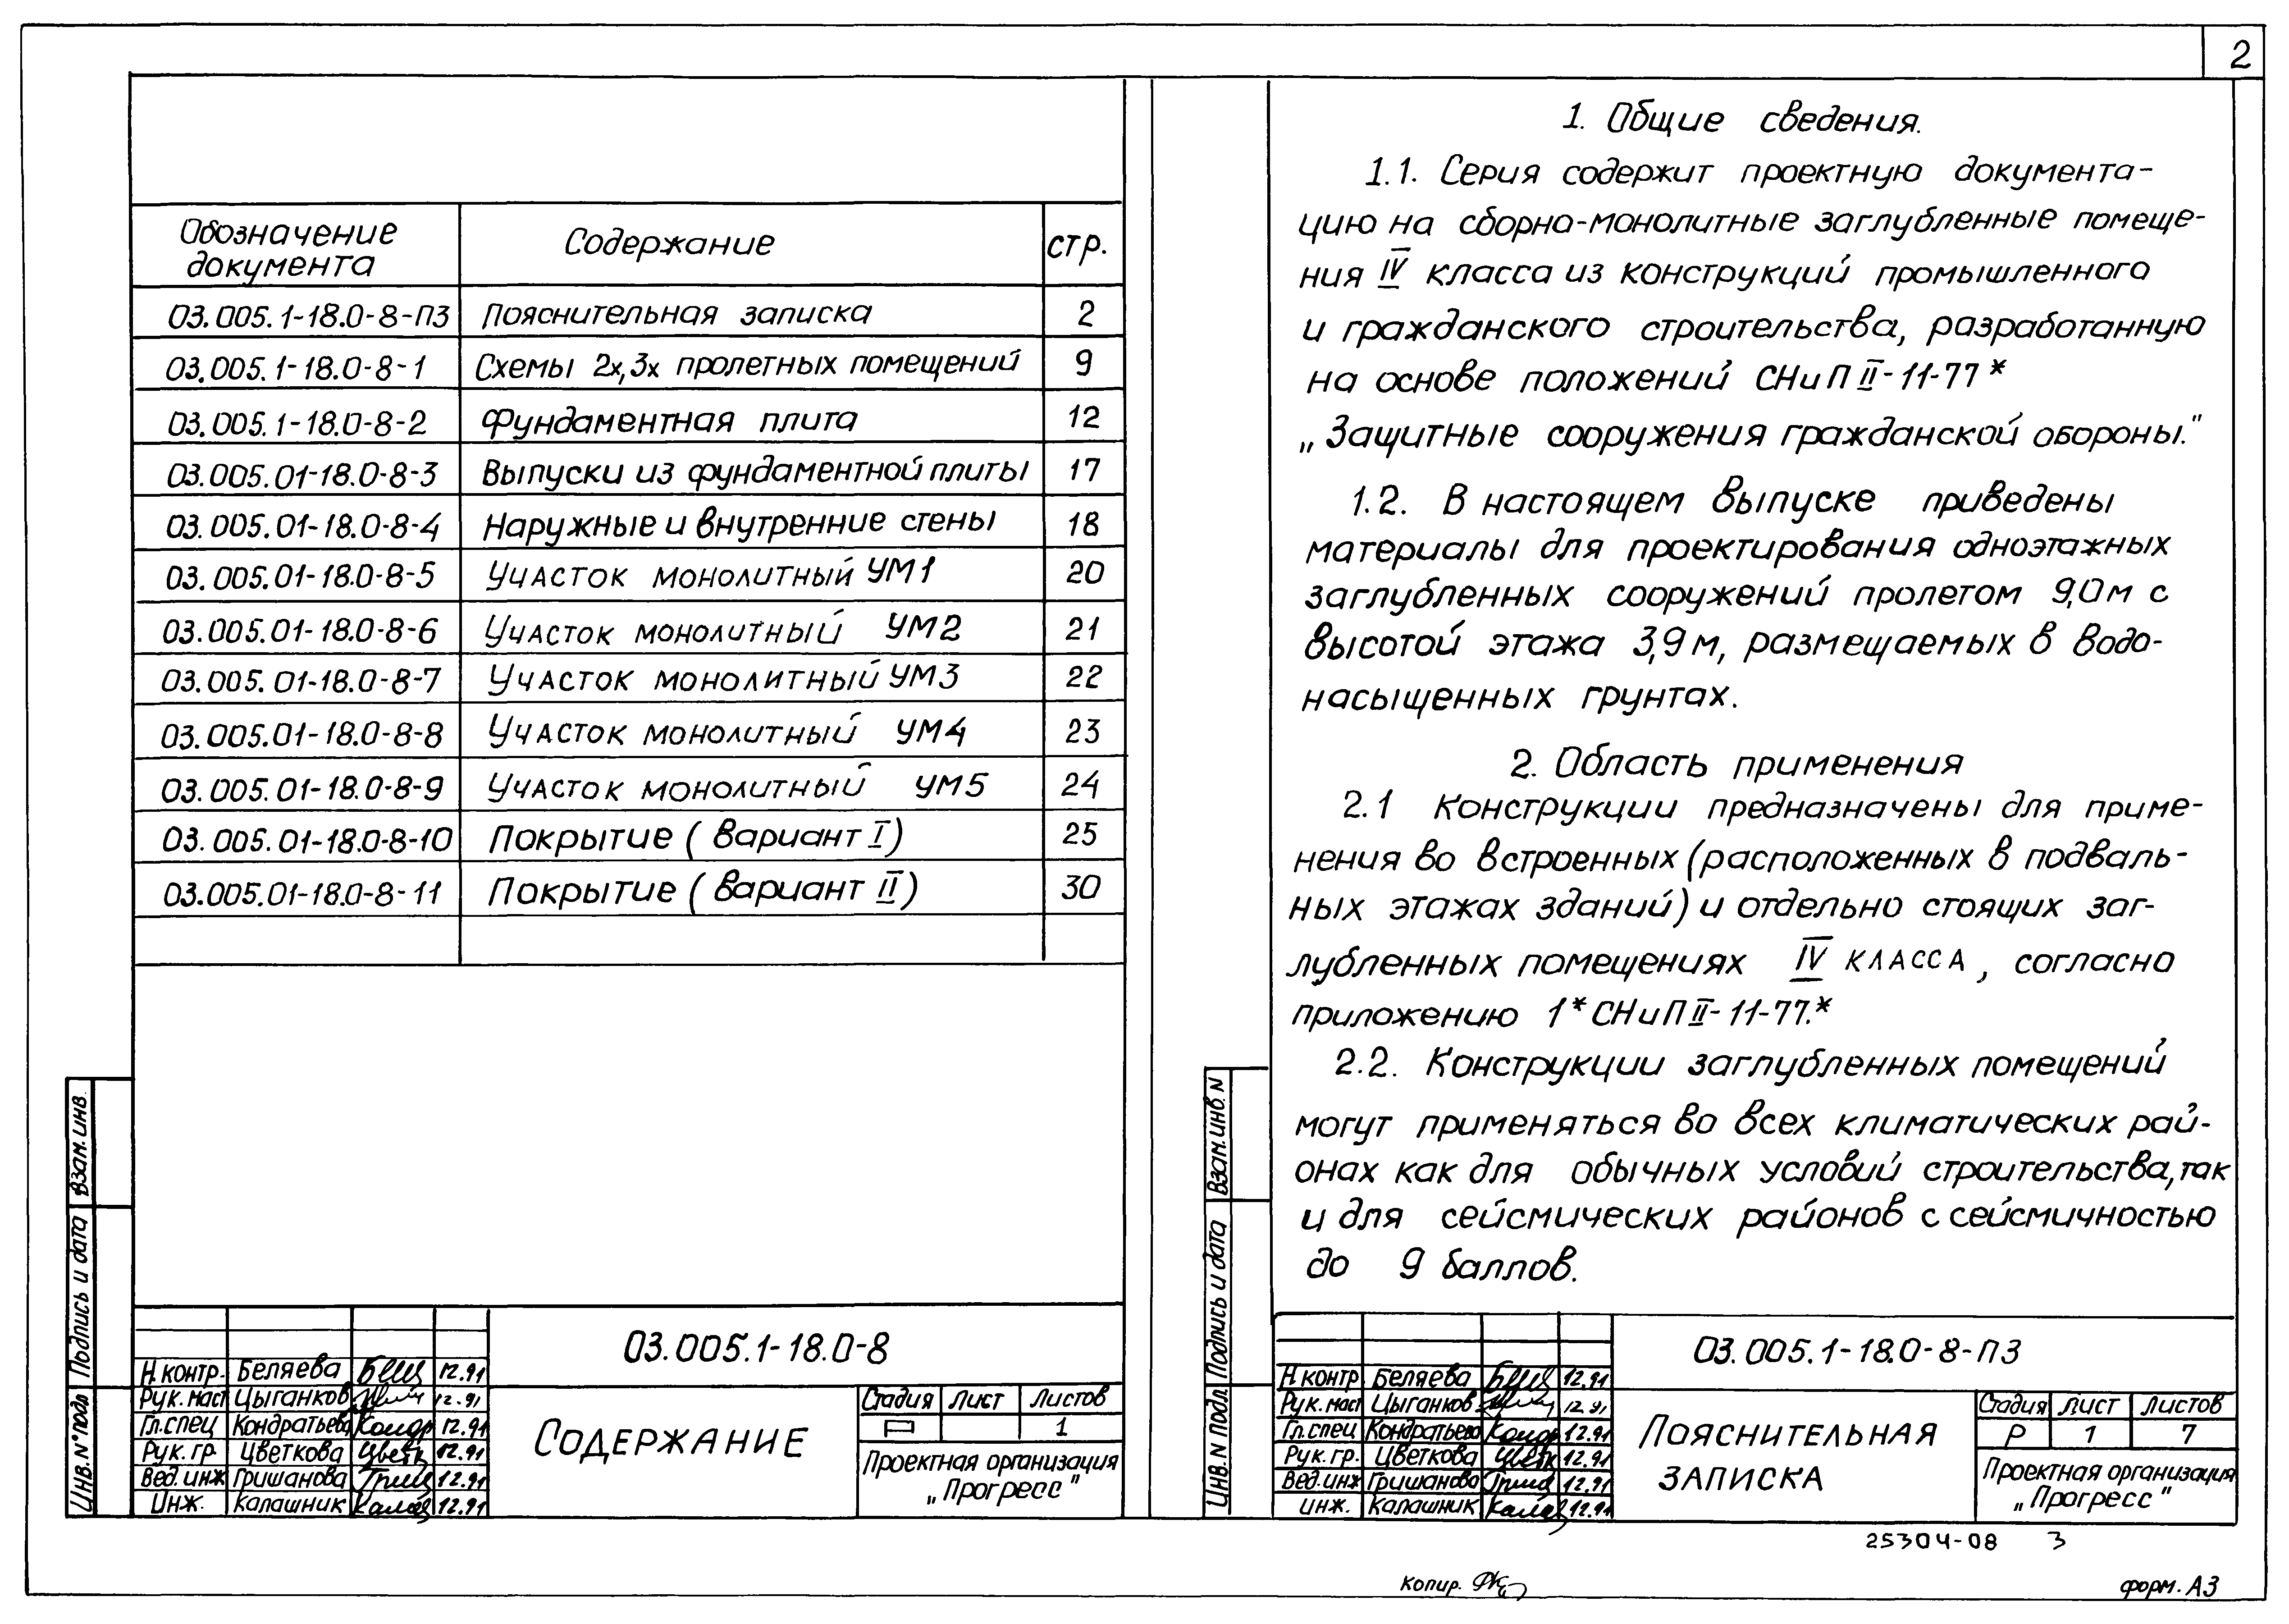 2
Обозначение документа Содержание стр.
03.005.1-18.0-8-ПЗ Пояснительная записка 2
03.005.1-18.0-8-1 Схемы 2х,3х пролетных помещений 9
03.005.1-18.0-8-2 Фундаментная плита 12
03.005.01-18.0-8-3 Выпуски из фундаментной плиты 17
03.005.01-18.0-8-4 Наружные и внутренние стены 18
03.005.01-18.0-8-5 Участок монолитный УМ1 20
03.005.01-18.0-8-6 Участок монолитный УМ2 21
03.005.01-18.0-8-7 Участок монолитный УМ3 22
03.005.01-18.0-8-8 Участок монолитный УМ4 23
03.005.01-18.0-8-9 Участок монолитный УМ5 24
03.005.01-18.0-8-10 Покрытие (вариант I) 25
03.005.01-18.0-8-11 Покрытие (вариант II) 30
Взам. инв.
Подпись и дата
Инв. N° подл
03.005.1-18.0-8
Н.контр. Беляева 12.91
Рук. маст Цыганков 12.91
Гл.спец Кондратьева 12.91
Рук. гр. Цветкова 12.91
Вед. инж Гришанова 12.91
Инж. Калашник 12.91
Содержание
Стадия Лист Листов
Р 1
Проектная организация
„Прогресс"
1. Общие сведения.
1.1. Серия содержит проектную документа-
цию на сборно-монолитные заглубленные помеще-
ния IV класса из конструкций промышленного
и гражданского строительства, разработанную
на основе положений СНиП II-11-77*
„Защитные сооружения гражданской обороны."
1.2. В настоящем выпуске приведены
материалы для проектирования одноэтажных
заглубленных сооружений пролетом 9,0м с
высотой этажа 3,9м, размещаемых в водо-
насыщенных грунтах.
2. Область применения
2.1 Конструкции предназначены для приме-
нения во встроенных (расположенных в подваль-
ных этажах зданий) и отдельно стоящих заг-
лубленных помещениях IV класса, согласно
приложению 1* СНиП II-11-77.*
2.2. Конструкции заглубленных помещений
могут применяться во всех климатических рай-
онах как для обычных условий строительства, так
и для сейсмических районов с сейсмичностью
до 9 баллов.
Взам. инв. N
Подпись и дата
Инв. N подл
03.005.1-18.0-8-ПЗ
Н.контр Беляева 12.91
Рук. маст Цыганков 12.91
Гл.спец Кондратьева 12.91
Рук. гр. Цветкова 12.91
Вед. инж Гришанова 12.91
инж. Калашник 12.91
Пояснительная
записка
Стадия лист листов
Р 1 7
Проектная организация
„Прогресс"
25304-08 3
Копир.
форм. А3